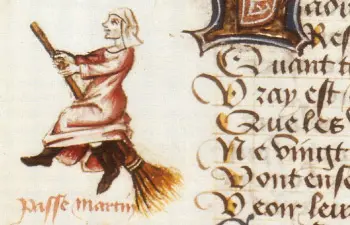 Quant t
Vray est
Que les
Ne vingt
Vont ense
Veoir leur
passe martin